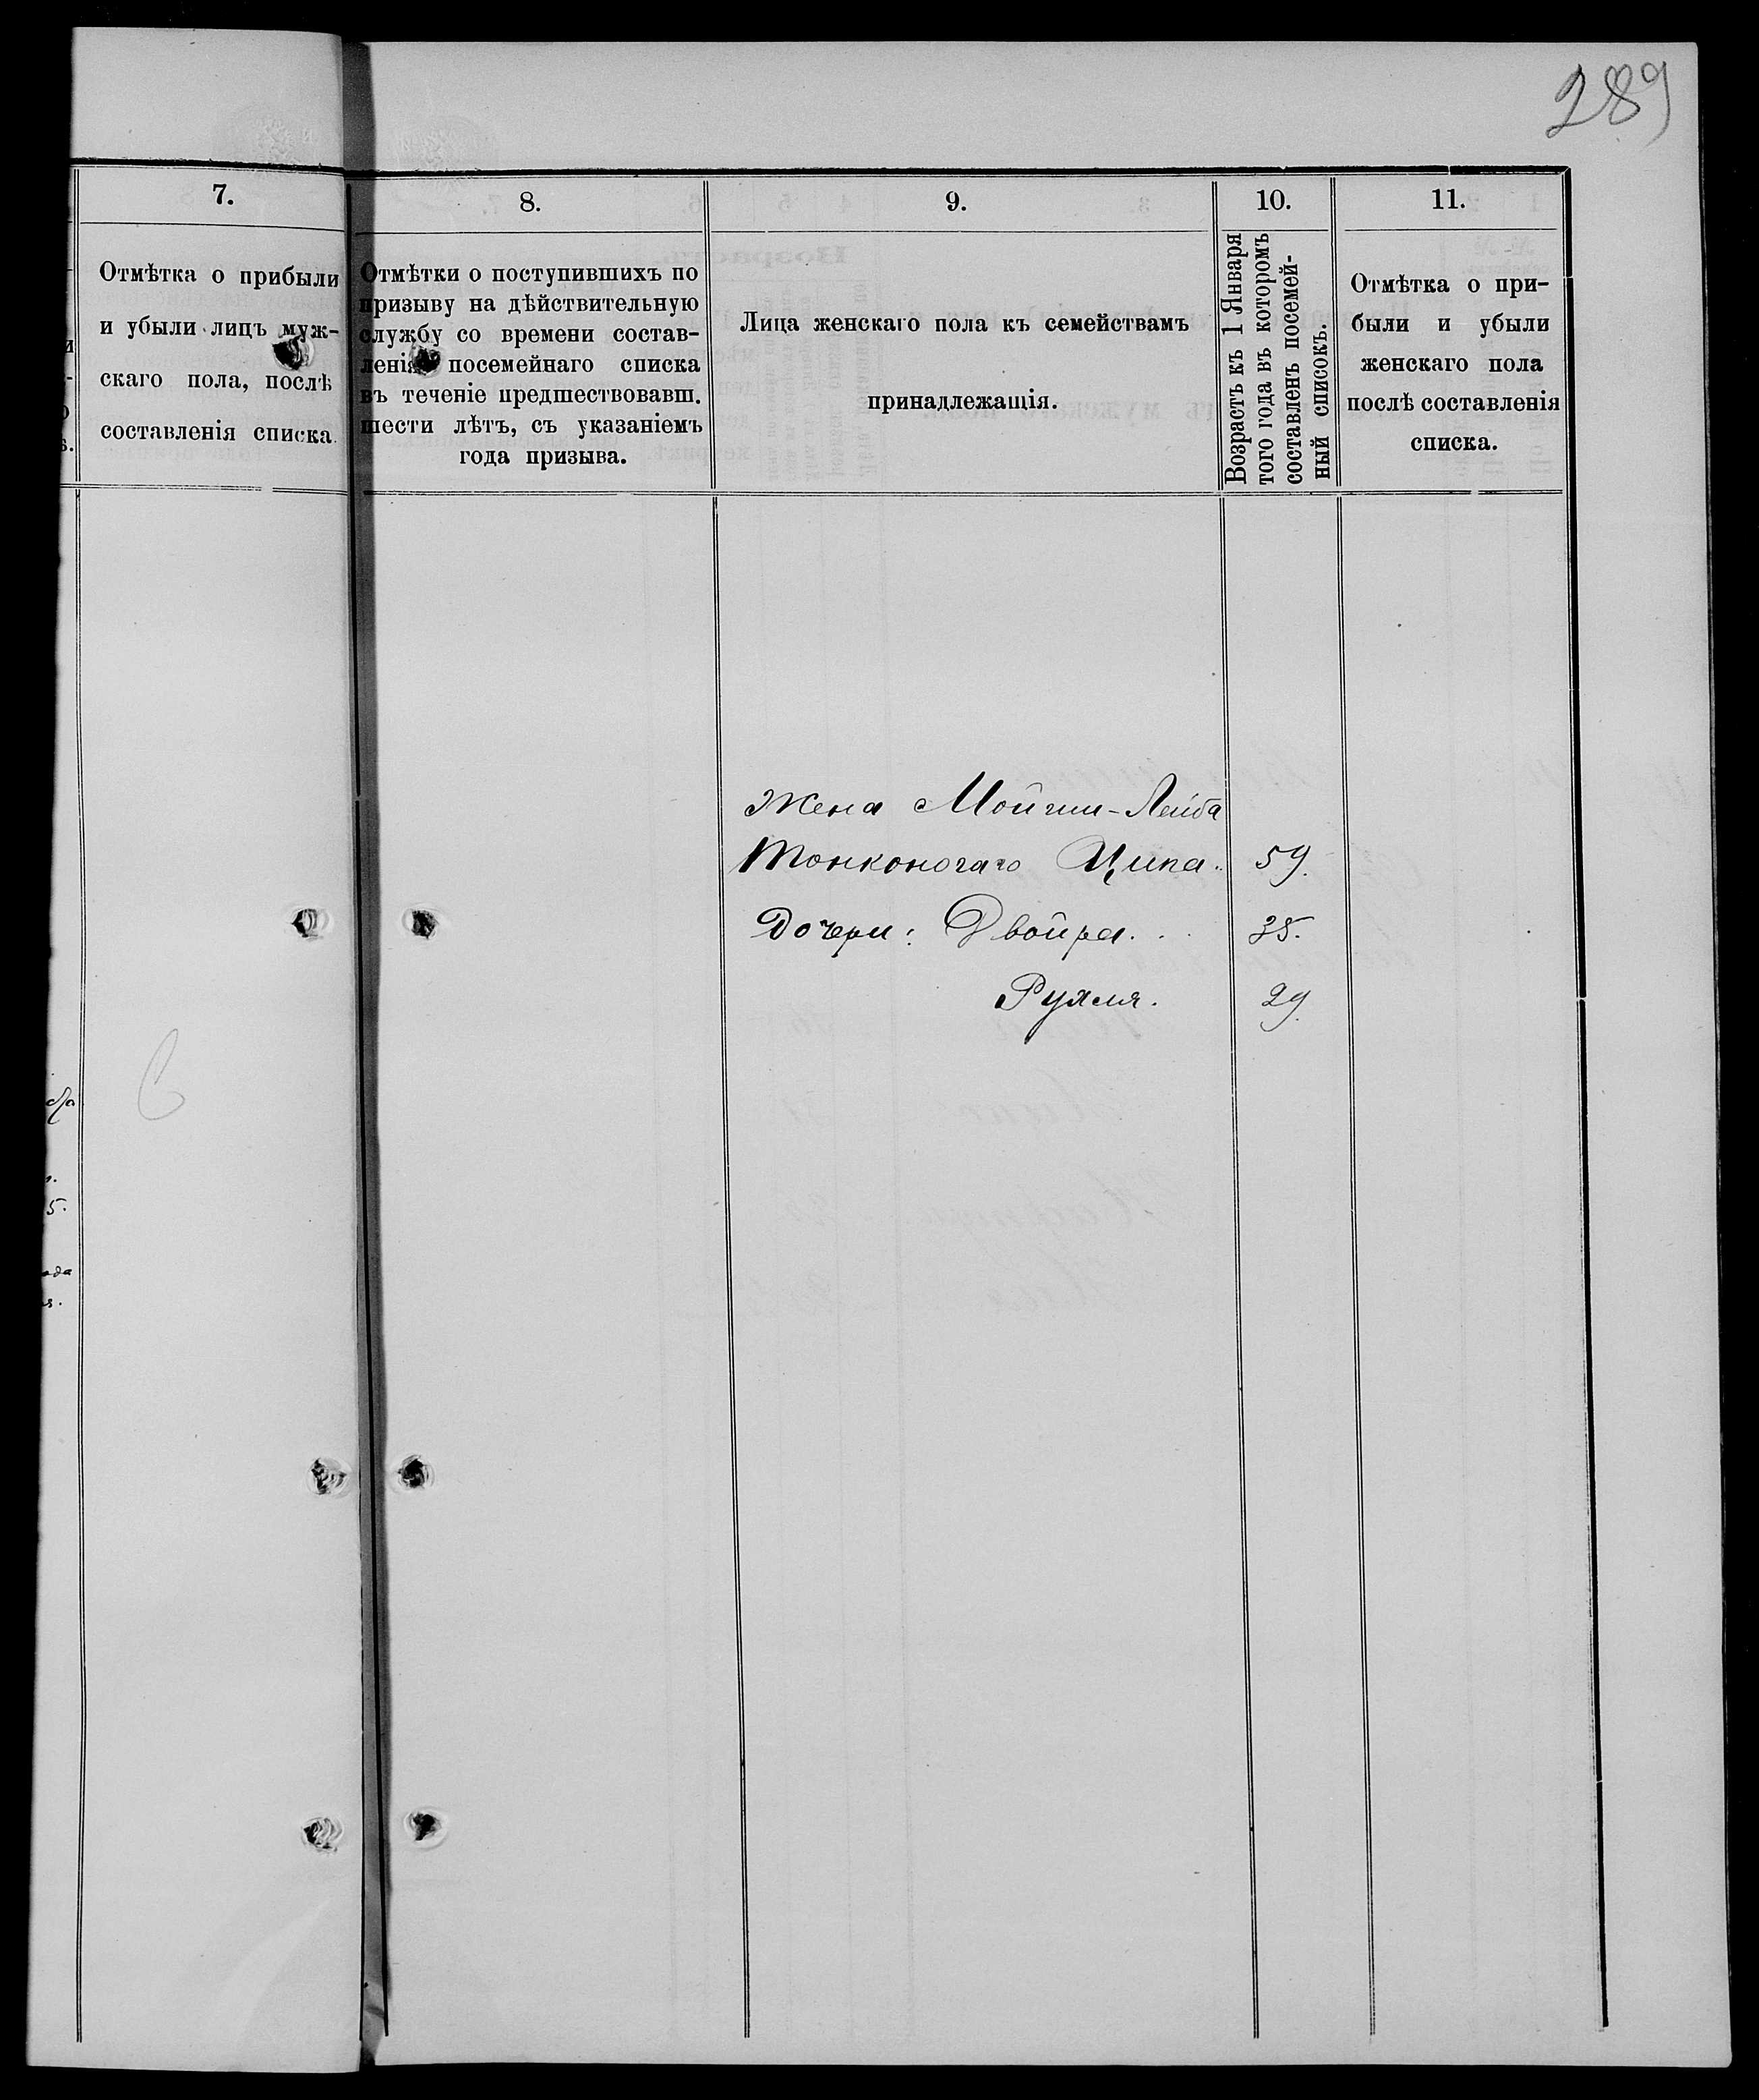 289
7.
Отмѣтка о прибыли
и убыли лицъ муж-
скаго пола, послѣ
составленія списка.
8.
Отмѣтки о поступившихъ по
призыву на дѣйствительную
службу со времени состав-
ленія посемейнаго списка
въ теченіе предшествовавш.
шести лѣтъ, съ указаніемъ
года призыва.
9.
Лица женскаго пола къ семействамъ
принадлежащія.
10.
Возрастъ къ 1 Января
того года въ которомъ
составленъ посемей-
ный списокъ.
11.
Отмѣтка о при-
были и убыли
женскаго пола
послѣ составленія
списка.
Жена Мойши-Лейба
Тонконогаго Ципа. 59.
Дочери: Двойра. . . 35.
Рухля. 29.